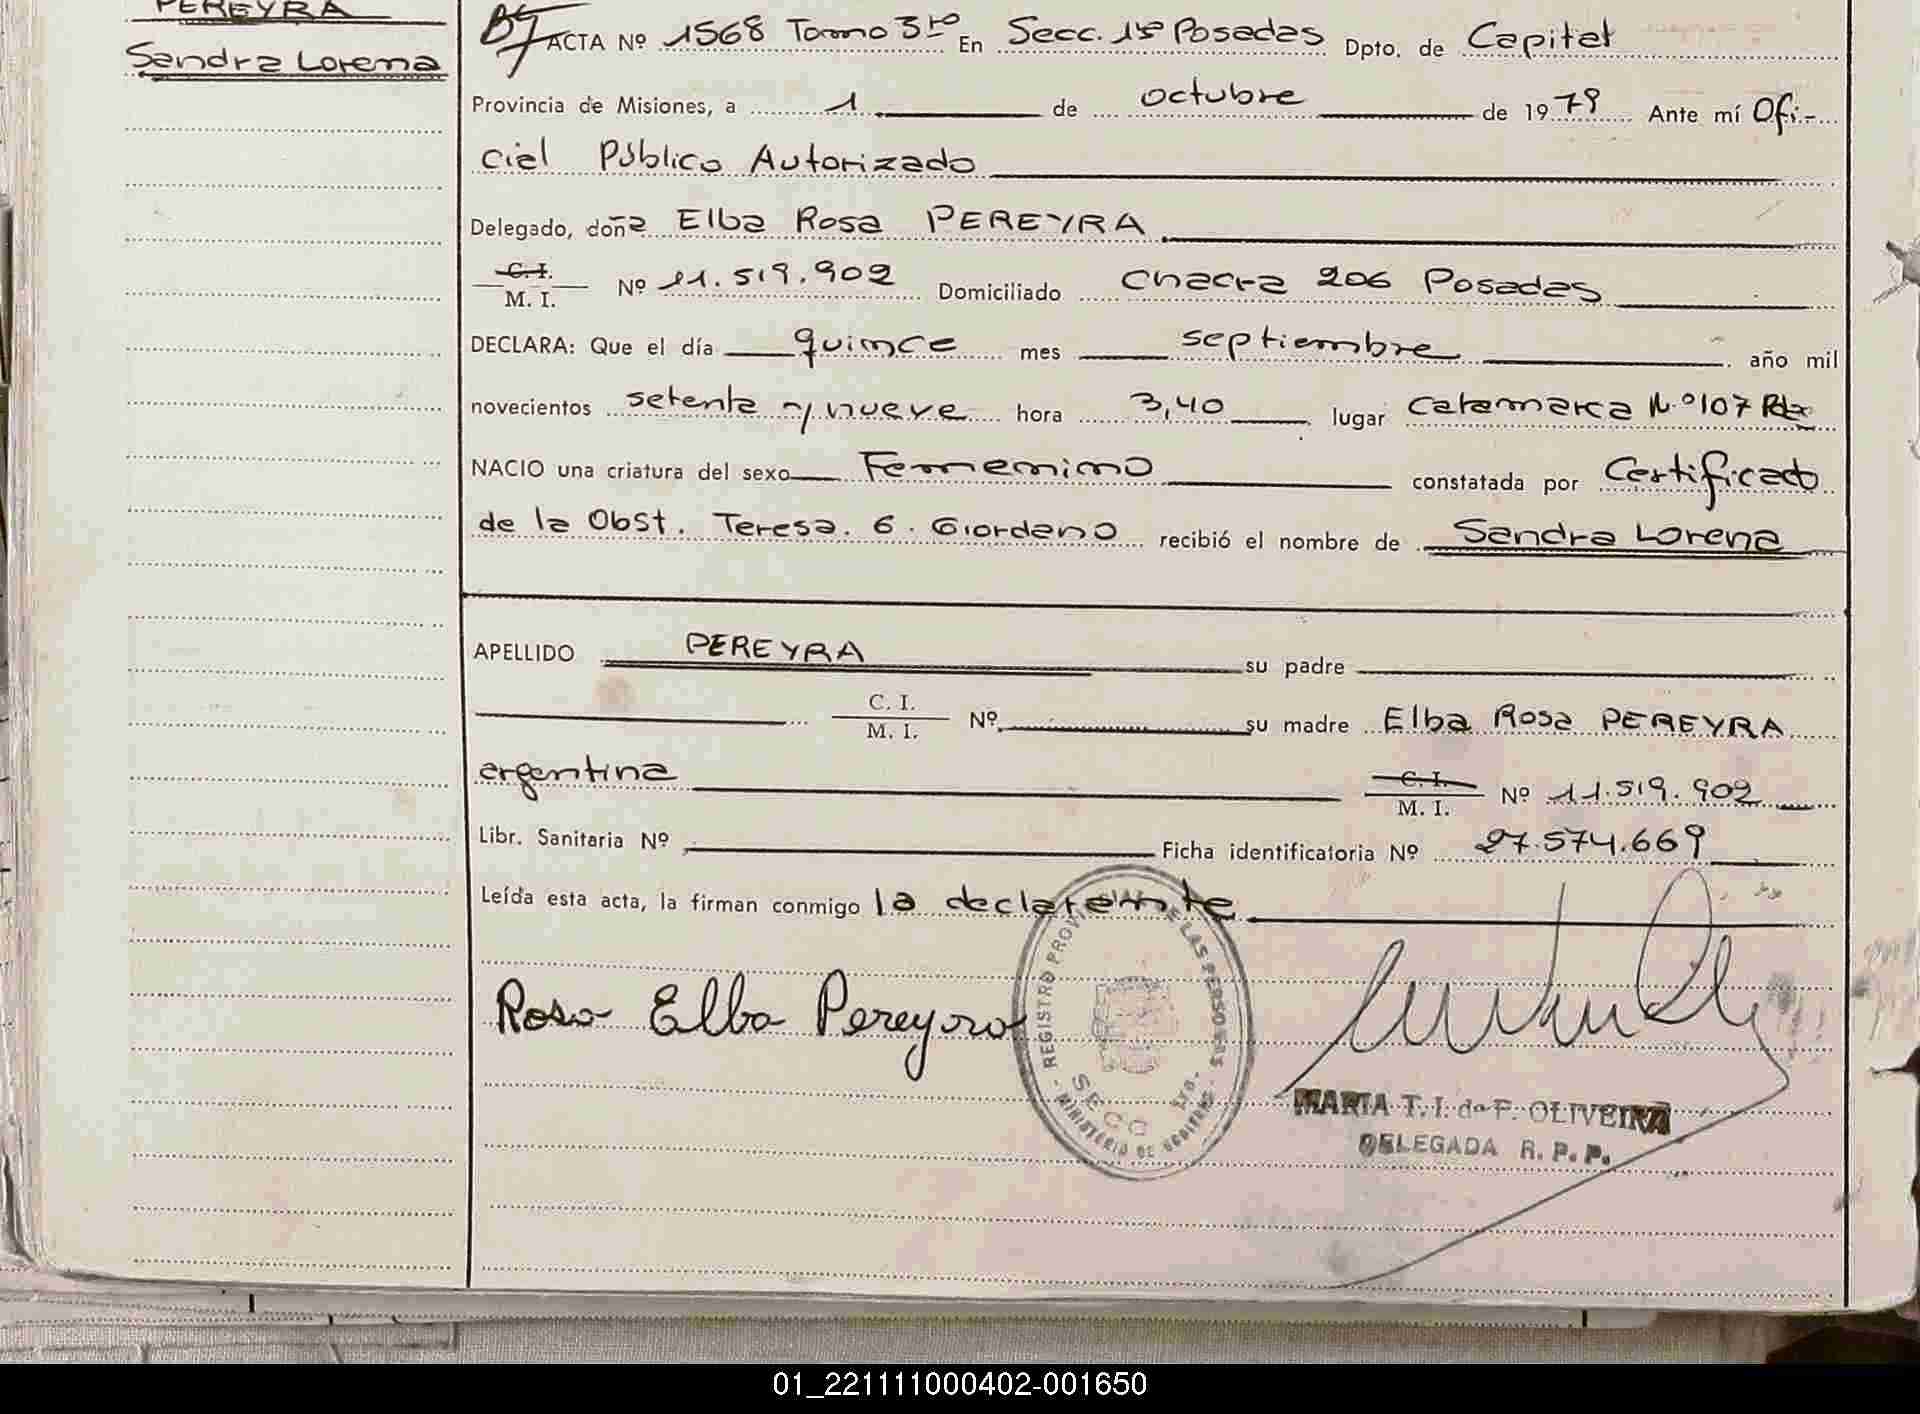 PEREYRA
Sandra Lorena
ACTA Nº 1568 Tomo 3ro En Secc. 1ª Posadas Dpto. de Capital
Provincia de Misiones, a 1 de octubre de 1979 Ante mí Ofi-
cial Público Autorizado
Delegado, doña Elba Rosa PEREYRA
C. I.
M. I. Nº 11.519.902 Domiciliado Chacra 206 Posadas
DECLARA: Que el día quince mes septiembre año mil
novecientos setenta y nueve hora 3,40 lugar Catamarca N.º 107 Pdas
NACIO una criatura del sexo Femenino constatada por Certificado
de la Obst. Teresa. G. Giordano recibió el nombre de Sandra Lorena
APELLIDO PEREYRA su padre
C. I.
M. I. Nº su madre Elba Rosa PEREYRA
argentina C. I.
M. I. Nº 11.519.902
Libr. Sanitaria Nº Ficha identificatoria Nº 27.574.669
Leída esta acta, la firman conmigo la declarante
Rosa Elba Pereyra
REGISTRO PROVINCIAL DE LAS PERSONAS
SECC 1ra
MINISTERIO DE GOBIERNO
MARIA T. I. de F. OLIVEIRA
DELEGADA R. P. P.
01_221111000402-001650